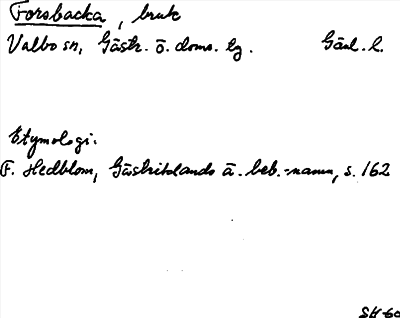 Forsbacka, bruk
Valbo sn, Gästr. ö. doms. lg. Gävl. l.
Etymologi:
F. Hedblom, Gästriklands ä. beb.-namn, s. 162
SH 60